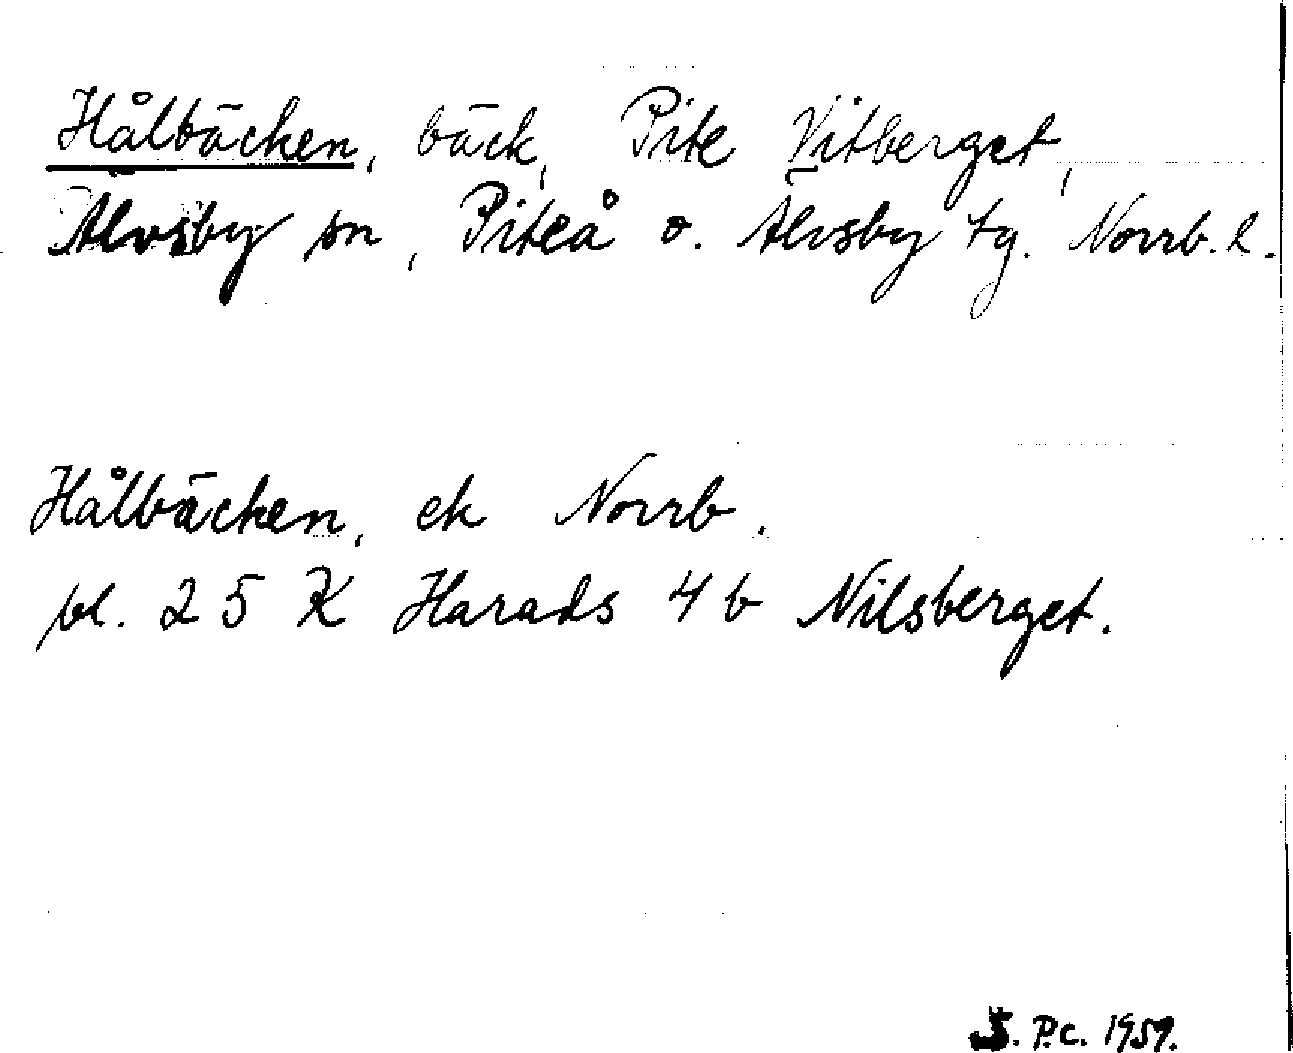 Hålbäcken, bäck, Pite Vitberget,
Älvsby sn, Piteå o. Älvsby tg. Norrb. l.
Hålbäcken, ek Norrb.
bl. 25 K Harads 4 b Nilsberget.
S. P.C. 1959.